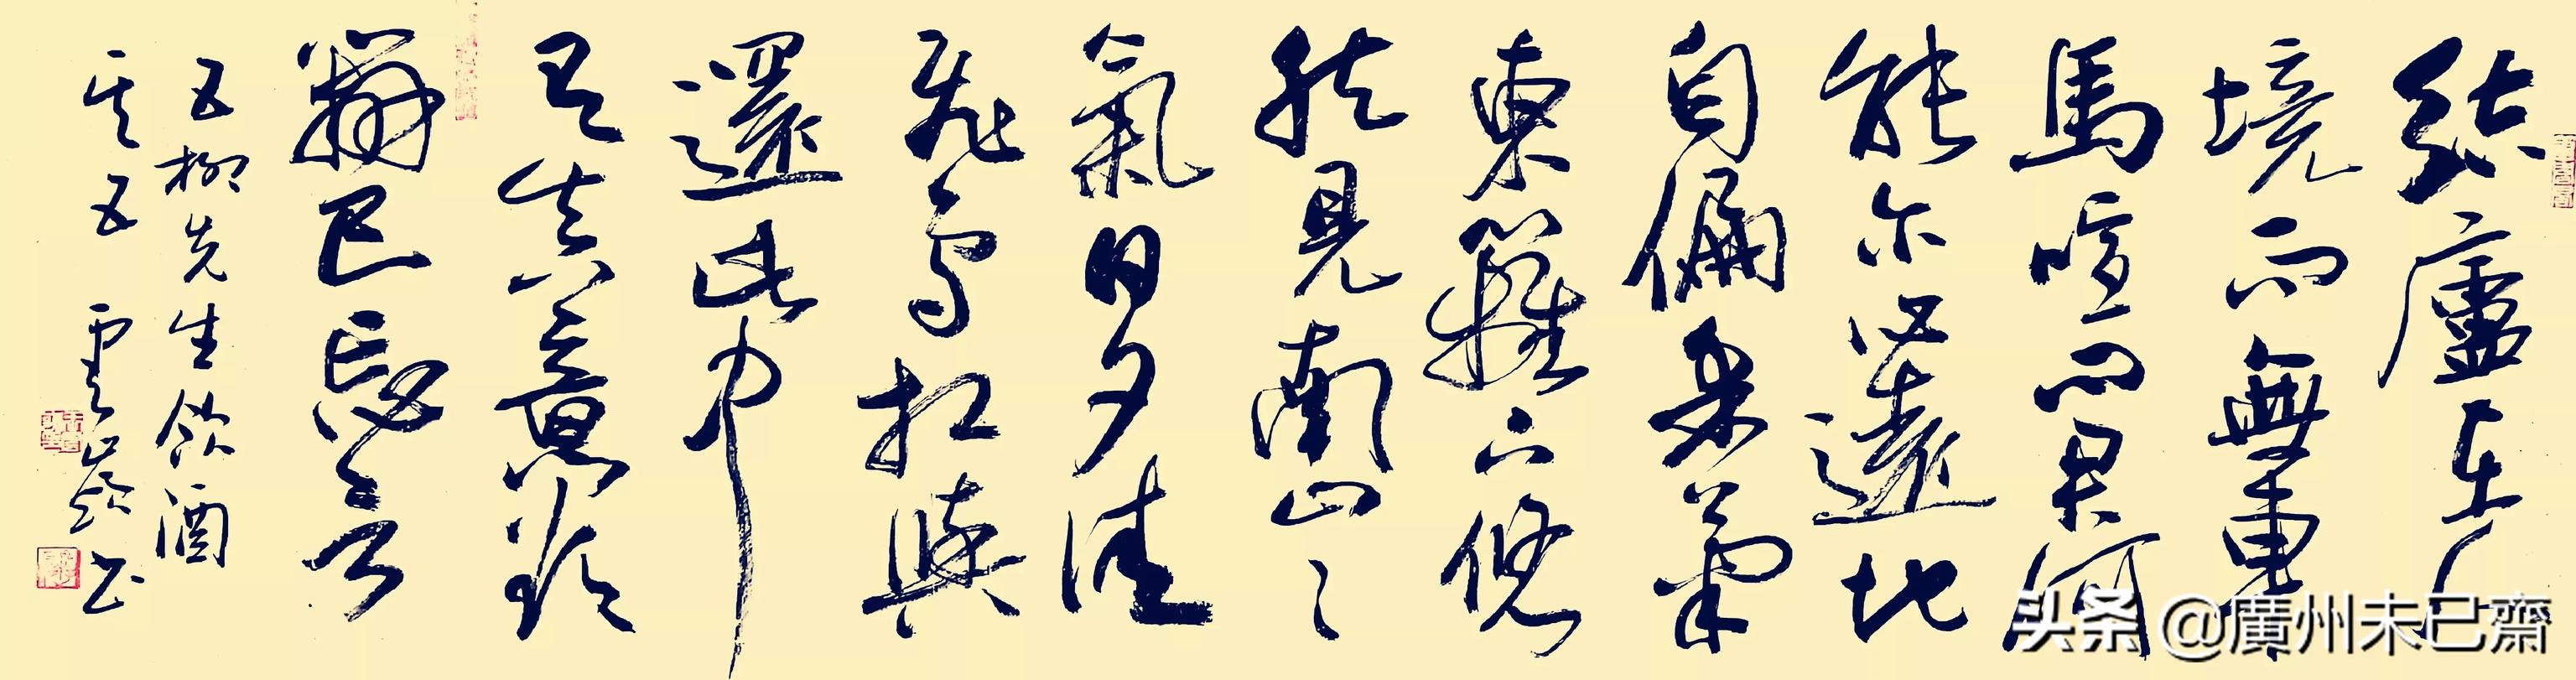 結廬在人
境而無車
馬喧問君何
能尔心遠地
自偏采菊
東籬下悠
然見南山〻
氣日夕佳
飛鳥相與
還此中
有真意欲
辯已忘言
五柳先生飲酒
其五 雲嶺书
头条 @廣州未已齋